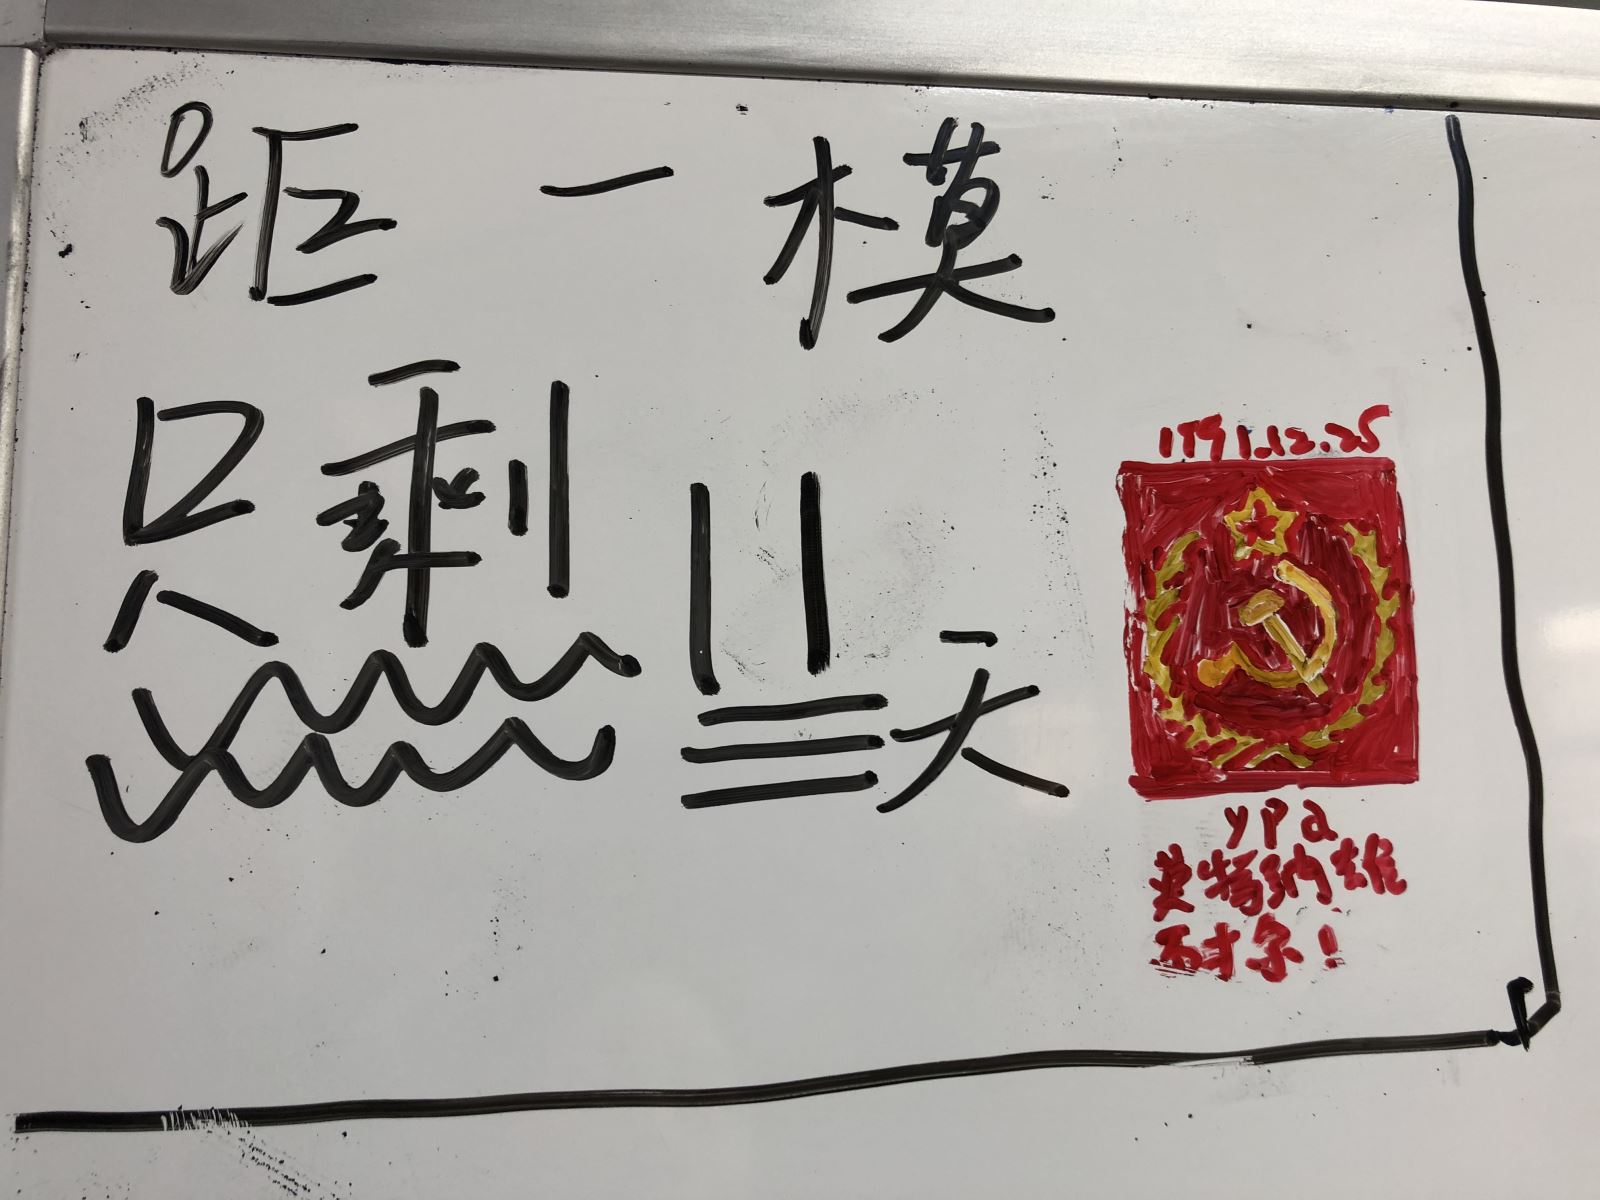 距一模
只剩11天
1991.12.25
ypa
英特纳雄
耐尔！